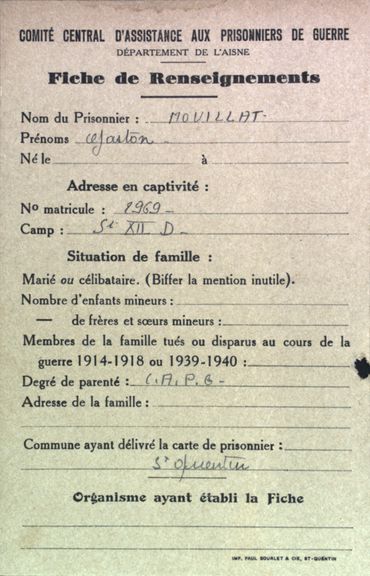 COMITÉ CENTRAL D'ASSISTANCE AUX PRISONNIERS DE GUERRE
DÉPARTEMENT DE L'AISNE
Fiche de Renseignements
Nom du Prisonnier : MOUILLAT
Prénoms Gaston
Né le à
Adresse en captivité :
No matricule : 2969
Camp : St XII D
Situation de famille :
Marié ou célibataire. (Biffer la mention inutile).
Nombre d'enfants mineurs :
— de frères et sœurs mineurs :
Membres de la famille tués ou disparus au cours de la
guerre 1914-1918 ou 1939-1940 :
Degré de parenté : C.A.P.G -
Adresse de la famille :
Commune ayant délivré la carte de prisonnier :
St Quentin
Organisme ayant établi la Fiche
IMP. PAUL BOUALET & CIE, ST-QUENTIN